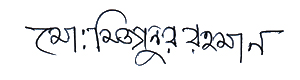 মোঃ মিজানুর রহমান